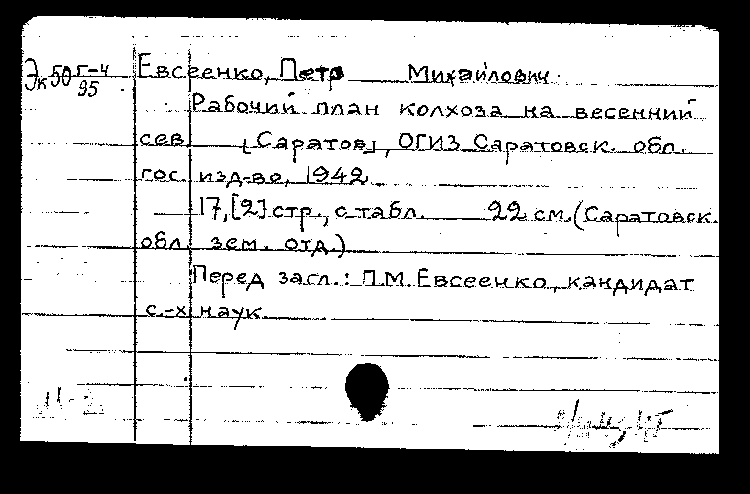 Эк50 Г-4/95
Евсеенко, Петр Михайлович.
Рабочий план колхоза на весенний
сев. [Саратов], ОГИЗ Саратовск. обл.
гос. изд-во, 1942.
17,[2] стр., с табл. 22 см. (Саратовск.
обл. зем. отд.)
Перед загл.: П.М. Евсеенко, кандидат
с.-х наук.